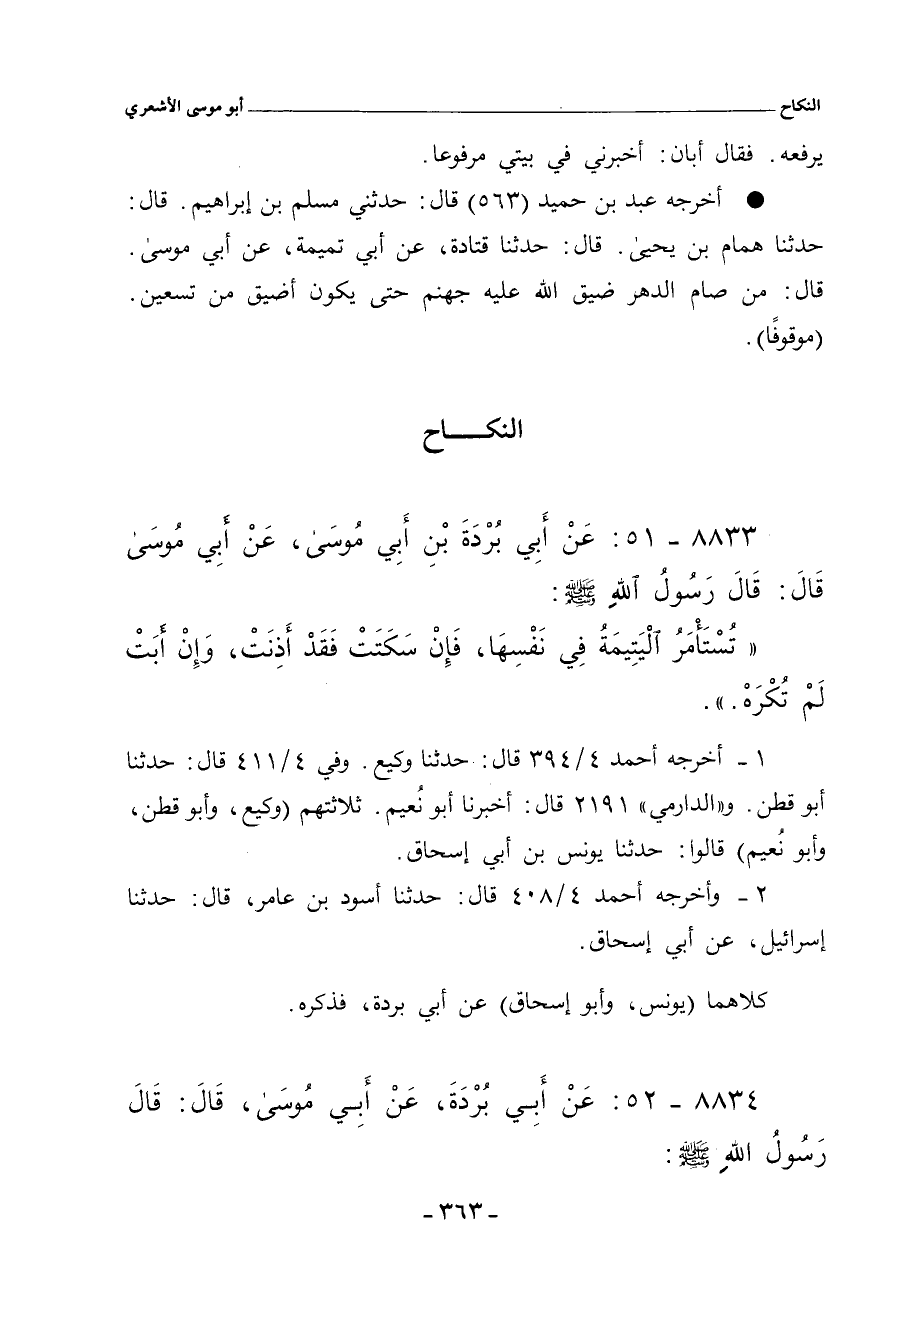 النكاح ــــــــــــــــــــــــــــــــــــــــ أبو موسى الأشعري
يرفعه. فقال أبان: أخبرني في بيتي مرفوعا.
● أخرجه عبد بن حميد (٥٦٣) قال: حدثني مسلم بن إبراهيم. قال:
حدثنا همام بن يحيىٰ. قال: حدثنا قتادة، عن أبي تميمة، عن أبي موسىٰ.
قال: من صام الدهر ضيق الله عليه جهنم حتى يكون أضيق من تسعين.
(موقوفًا).
النكـــــاح
٨٨٣٣ - ٥١: عَنْ أَبِي بُرْدَةَ بْنِ أَبِي مُوسَىٰ، عَنْ أَبِي مُوسَىٰ
قَالَ: قَالَ رَسُولُ ٱللهِ ﷺ:
« تُسْتَأْمَرُ ٱلْيَتِيمَةُ فِي نَفْسِهَا، فَإِنْ سَكَتَتْ فَقَدْ أَذِنَتْ، وَإِنْ أَبَتْ
لَمْ تُكْرَهْ.».
١ - أخرجه أحمد ٣٩٤/٤ قال: حدثنا وكيع. وفي ٤١١/٤ قال: حدثنا
أبو قطن. و«الدارمي» ٢١٩١ قال: أخبرنا أبو نُعيم. ثلاثتهم (وكيع، وأبو قطن،
وأبو نُعيم) قالوا: حدثنا يونس بن أبي إسحاق.
٢ - وأخرجه أحمد ٤٠٨/٤ قال: حدثنا أسود بن عامر، قال: حدثنا
إسرائيل، عن أبي إسحاق.
كلاهما (يونس، وأبو إسحاق) عن أبي بردة، فذكره.
٨٨٣٤ - ٥٢: عَنْ أَبِي بُرْدَةَ، عَنْ أَبِي مُوسَىٰ، قَالَ: قَالَ
رَسُولُ اللهِ ﷺ:
- ٣٦٣ -